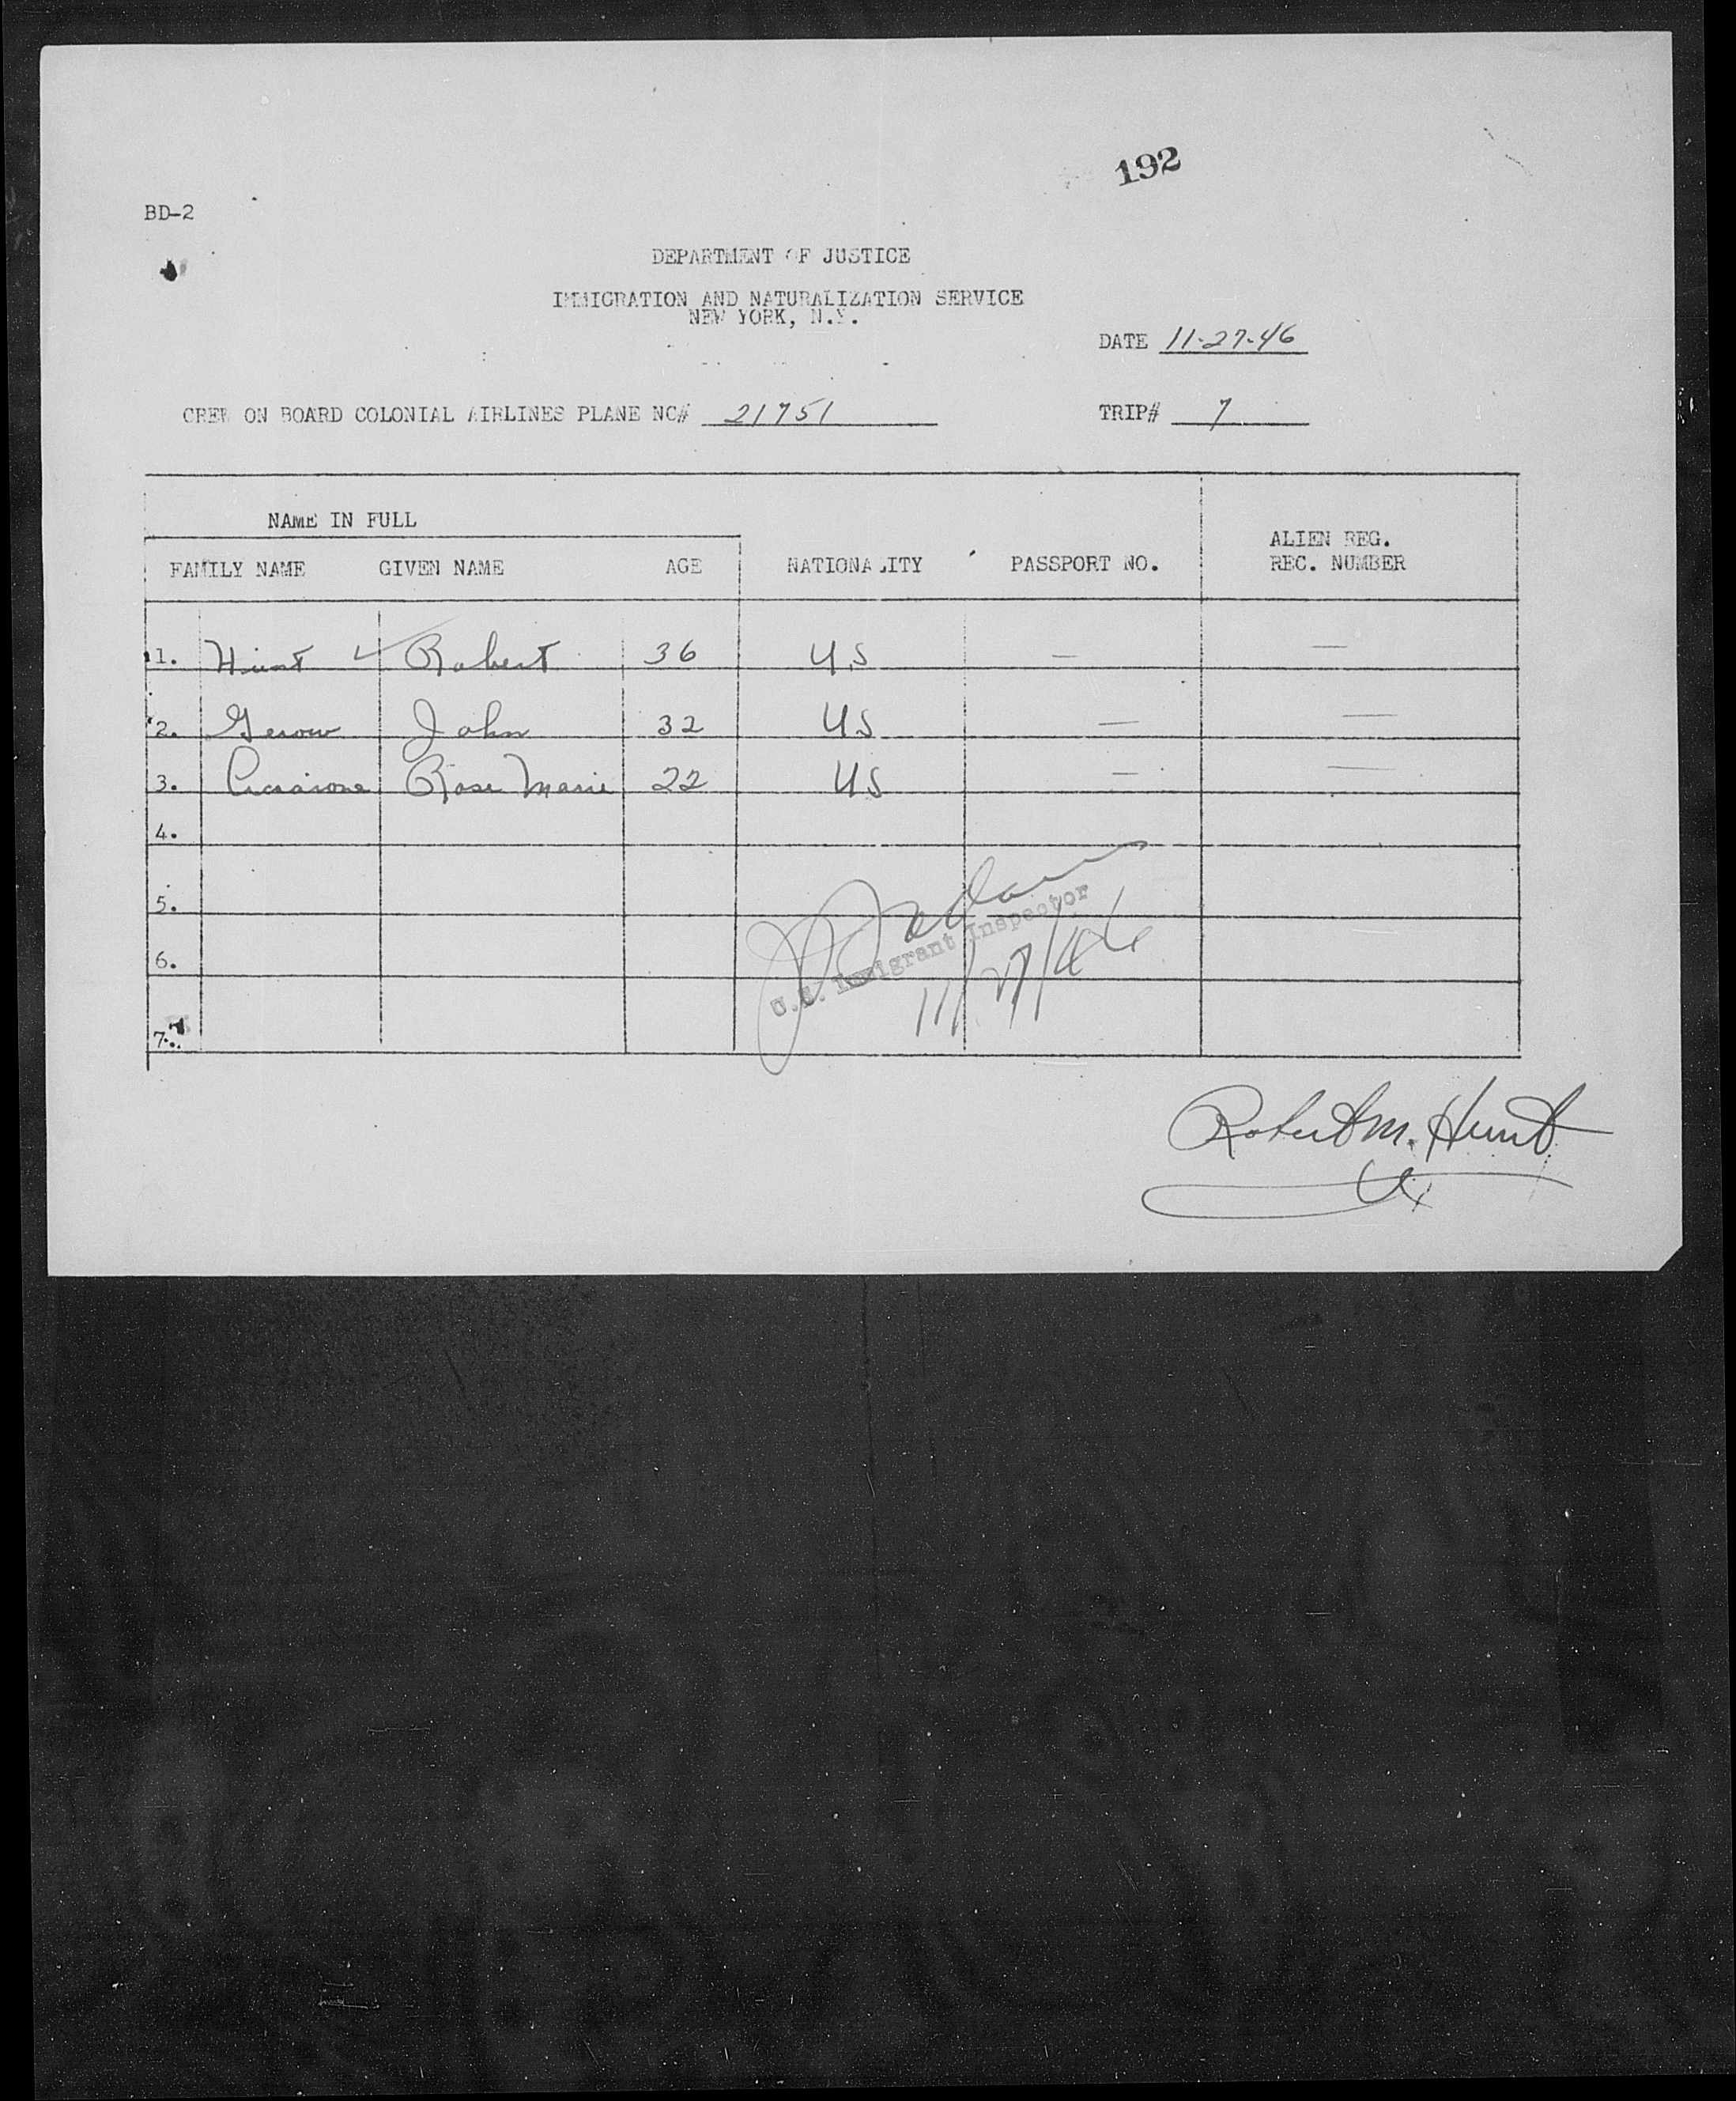 192
BD-2
DEPARTMENT OF JUSTICE
IMMIGRATION AND NATURALIZATION SERVICE
NEW YORK, N.Y.
DATE 11-27-46
CREW ON BOARD COLONIAL AIRLINES PLANE NC# 21751 TRIP# 7
NAME IN FULL
FAMILY NAME GIVEN NAME AGE NATIONALITY PASSPORT NO. ALIEN REG. REC. NUMBER
1. Hunt ✓ Robert 36 U.S — —
2. Gerow John 32 US — —
3. Rose Marie 22 US — —
4.
5.
6.
7.
U.S. Immigrant Inspector
11/27/46
Robert M. Hunt